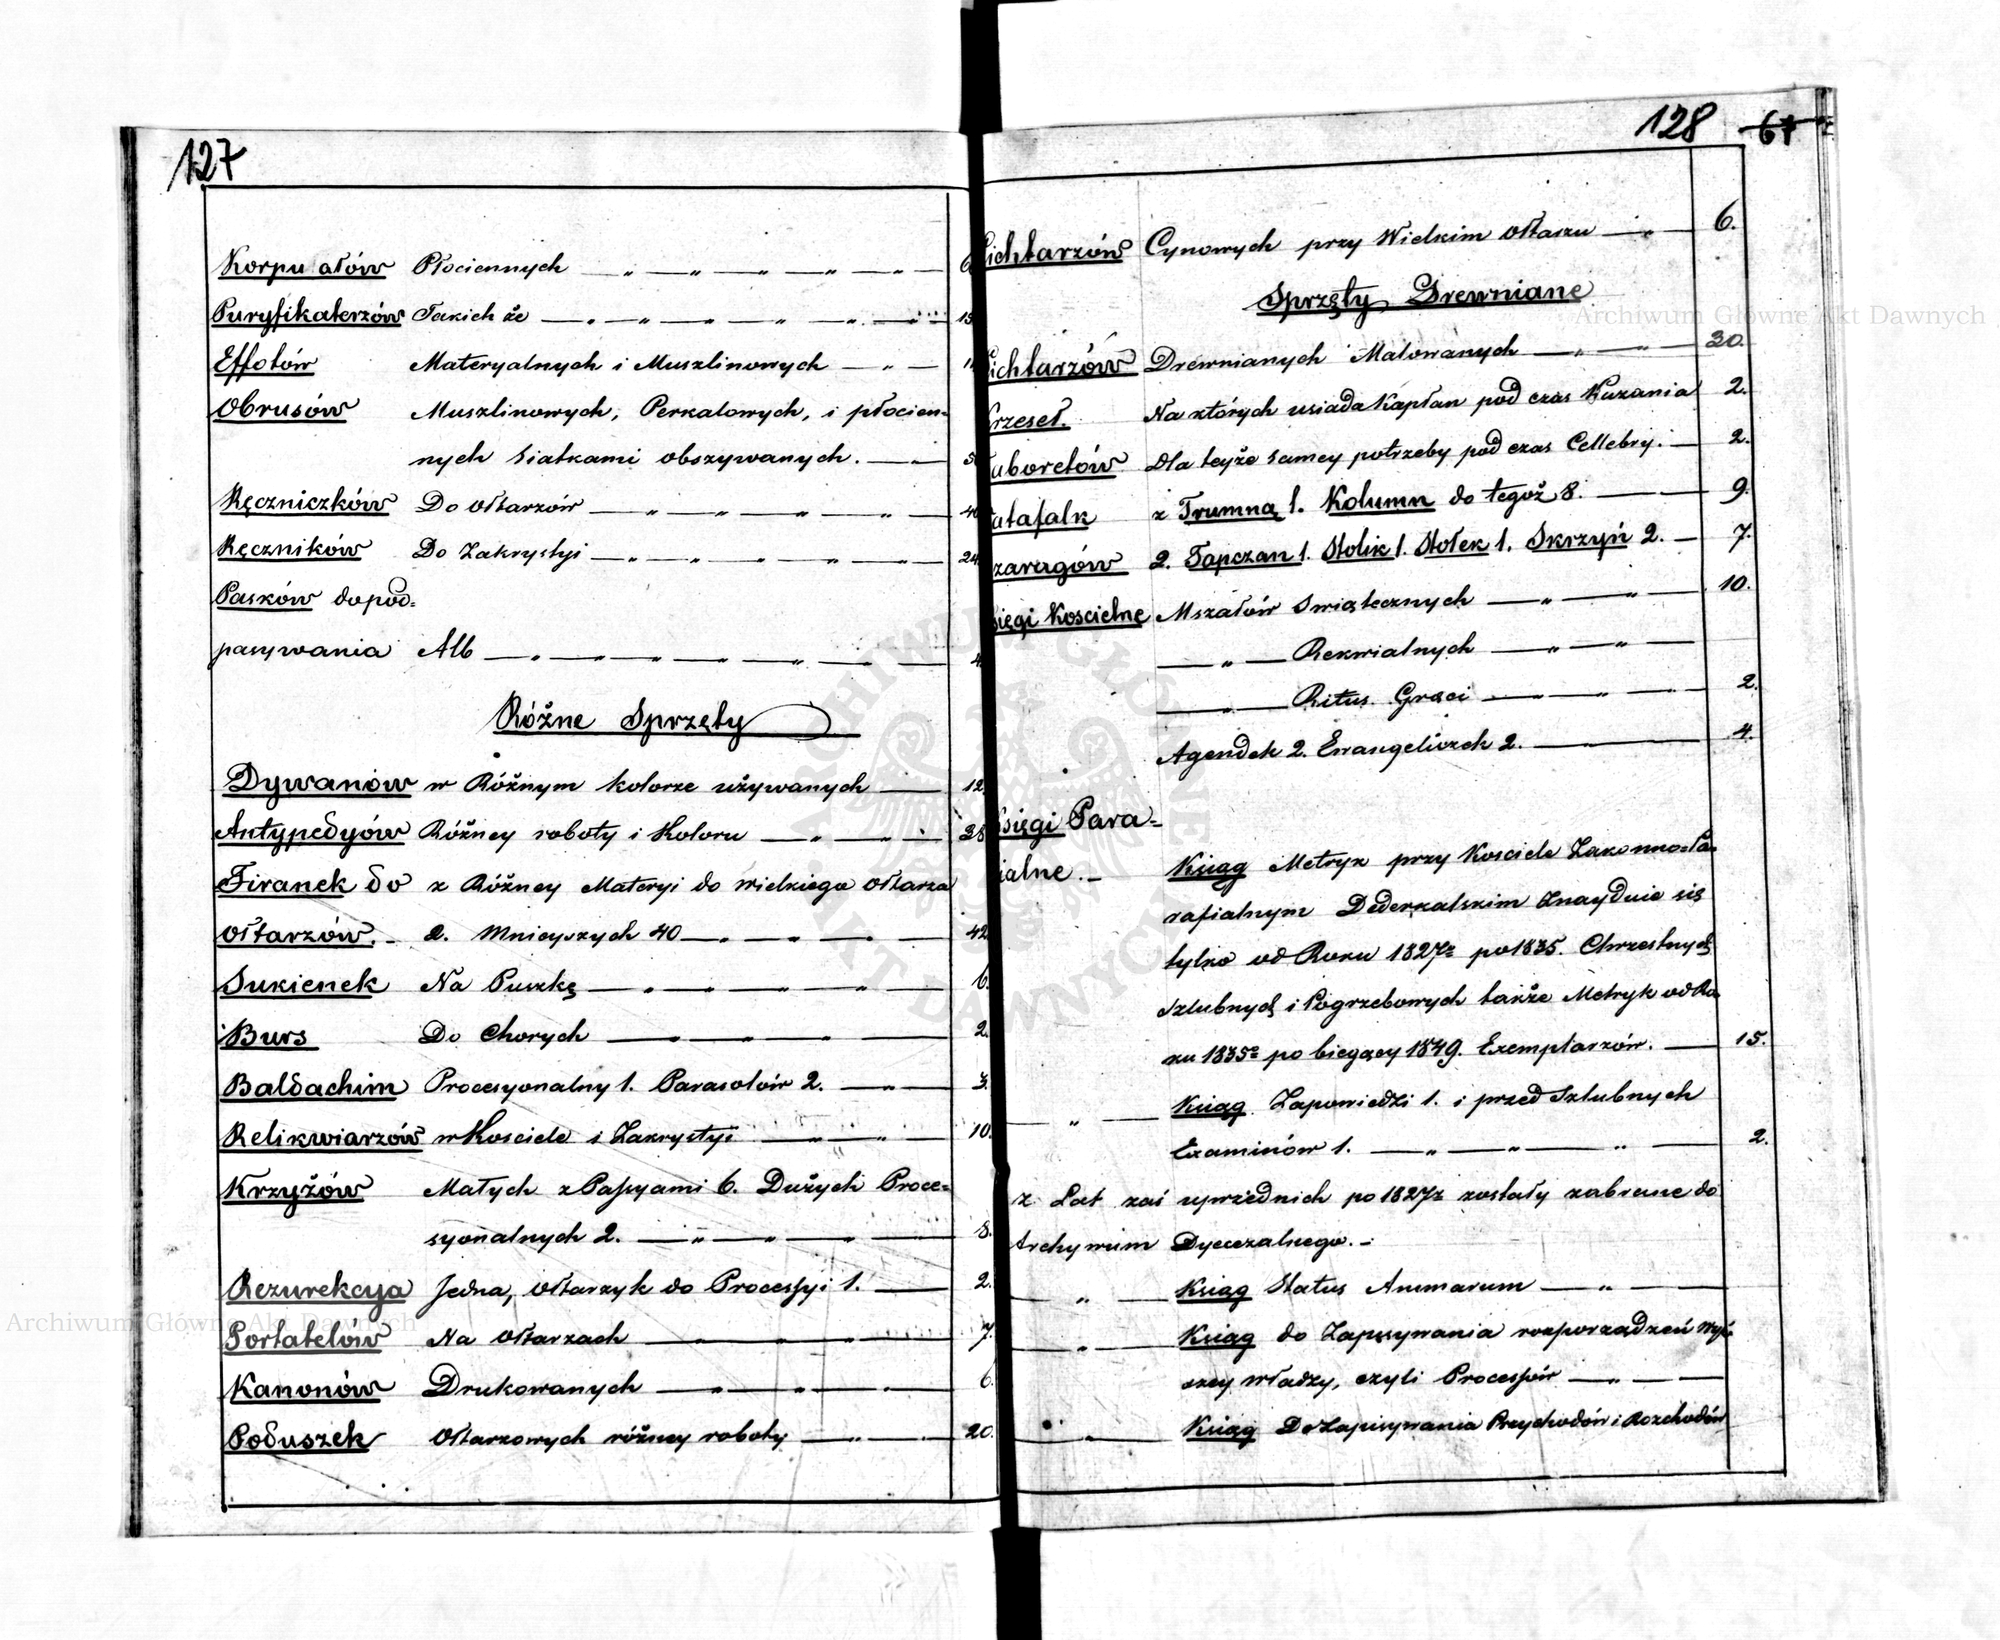 127
Korpuałów Płociennych — „ — „ — „ — „ — „ —
Puryfikaterzów Takich że — „ — „ — „ — „ — „ —
Effotów Materyalnych i Muszlinowych — „ —
Obrusów Muszlinowych, Perkalowych, i płocien=
nych siatkami obszywanych. — „
Ręczniczków Do Ołtarzów — „ — „ — „ — „ — „ —
Ręczników Do Zakrystyi — „ — „ — „ — „ — „ — 24
Pasków do pod=
pasywania Alb — „ — „ — „ — „ — „ —
Różne Sprzęty
Dywanów w Różnym kolorze używanych — 12
Antypedyów Różney roboty i Koloru — „ — 28
Firanek do z Różney Materyi do wielkiego Ołtarza
Ołtarzów. - 2. Mnieyszych 40 — „ — „ — „ — 42
Sukienek Na Puszkę — „ — „ — „ — „ — 6.
Burs Do Chorych — „ — „ — „ — 2.
Baldachim Procesyonalny 1. Parasolów 2. — „ — 3.
Relikwiarzów w Kosciele i Zakrystyi — „ — „ — 10.
Krzyżów Małych z Passyami 6. Dużych Proce=
syonalnych 2. — „ — „ — „ — 8.
Rezurekcya Jedna, Ołtarzyk do Processyi 1. — 2.
Portatelów Na Ołtarzach — „ — „ — „ — 7
Kanonów Drukowanych — „ — „ — „ — 6.
Poduszek Ołtarzowych różney roboty — „ — 20.
128 67
ichtarzów Cynowych przy Wielkim Ołtarzu — „ — 6.
Sprzęty Drewniane
ichtarzów Drewnianych Malowanych — „ — „ — 30.
rzeseł. Na których usiada Kapłan pod czas Kazania 2.
aboretów Dla teyże samey potrzeby pod czas Cellebry. — 2.
atafalk z Trumną 1. Kolumn do tegoż 8. — 9.
zaragów 2. Tapczan 1. Stolik 1. Stołek 1. Skrzyń 2. — 7.
sięgi Koscielne Mszałów Swiątecznych — „ — „ — 10.
— „ — Rekwialnych — „ — „ —
— „ — Ritus Græci — „ — „ — 2.
Agendek 2. Ewangeliczek 2. — 4.
sięgi Para=
ialne. - Ksiąg Metryk przy Kosciele Zakonno=Pa=
rafialnym Dederkalskim Znayduie się
tylko od Roku 1827º po 1835. Chrzestnych
Szlubnych i Pogrzebowych także Metryk od Ro
ku 1835º po biegący 1849. Exemplarzów. — 15.
— „ — Ksiąg Zapowiedzi 1. i przed Szlubnych
Examinów 1. — „ — „ — „ — 2.
z Lat zaś uprzednich po 1827º zostały zabrane do
Archywum Dyecezalnego. -
— „ — Ksiąg Status Animarum — „ —
— „ — Ksiąg do Zapisywania rozporządzeń Wyż=
szey władzy, czyli Processów — „ —
— „ — Ksiąg Do Zapisywania Przychodów i Rozchodów
Archiwum Główne Akt Dawnych
Archiwum Główne Akt Dawnych
ARCHIWUM GŁÓWNE AKT DAWNYCH